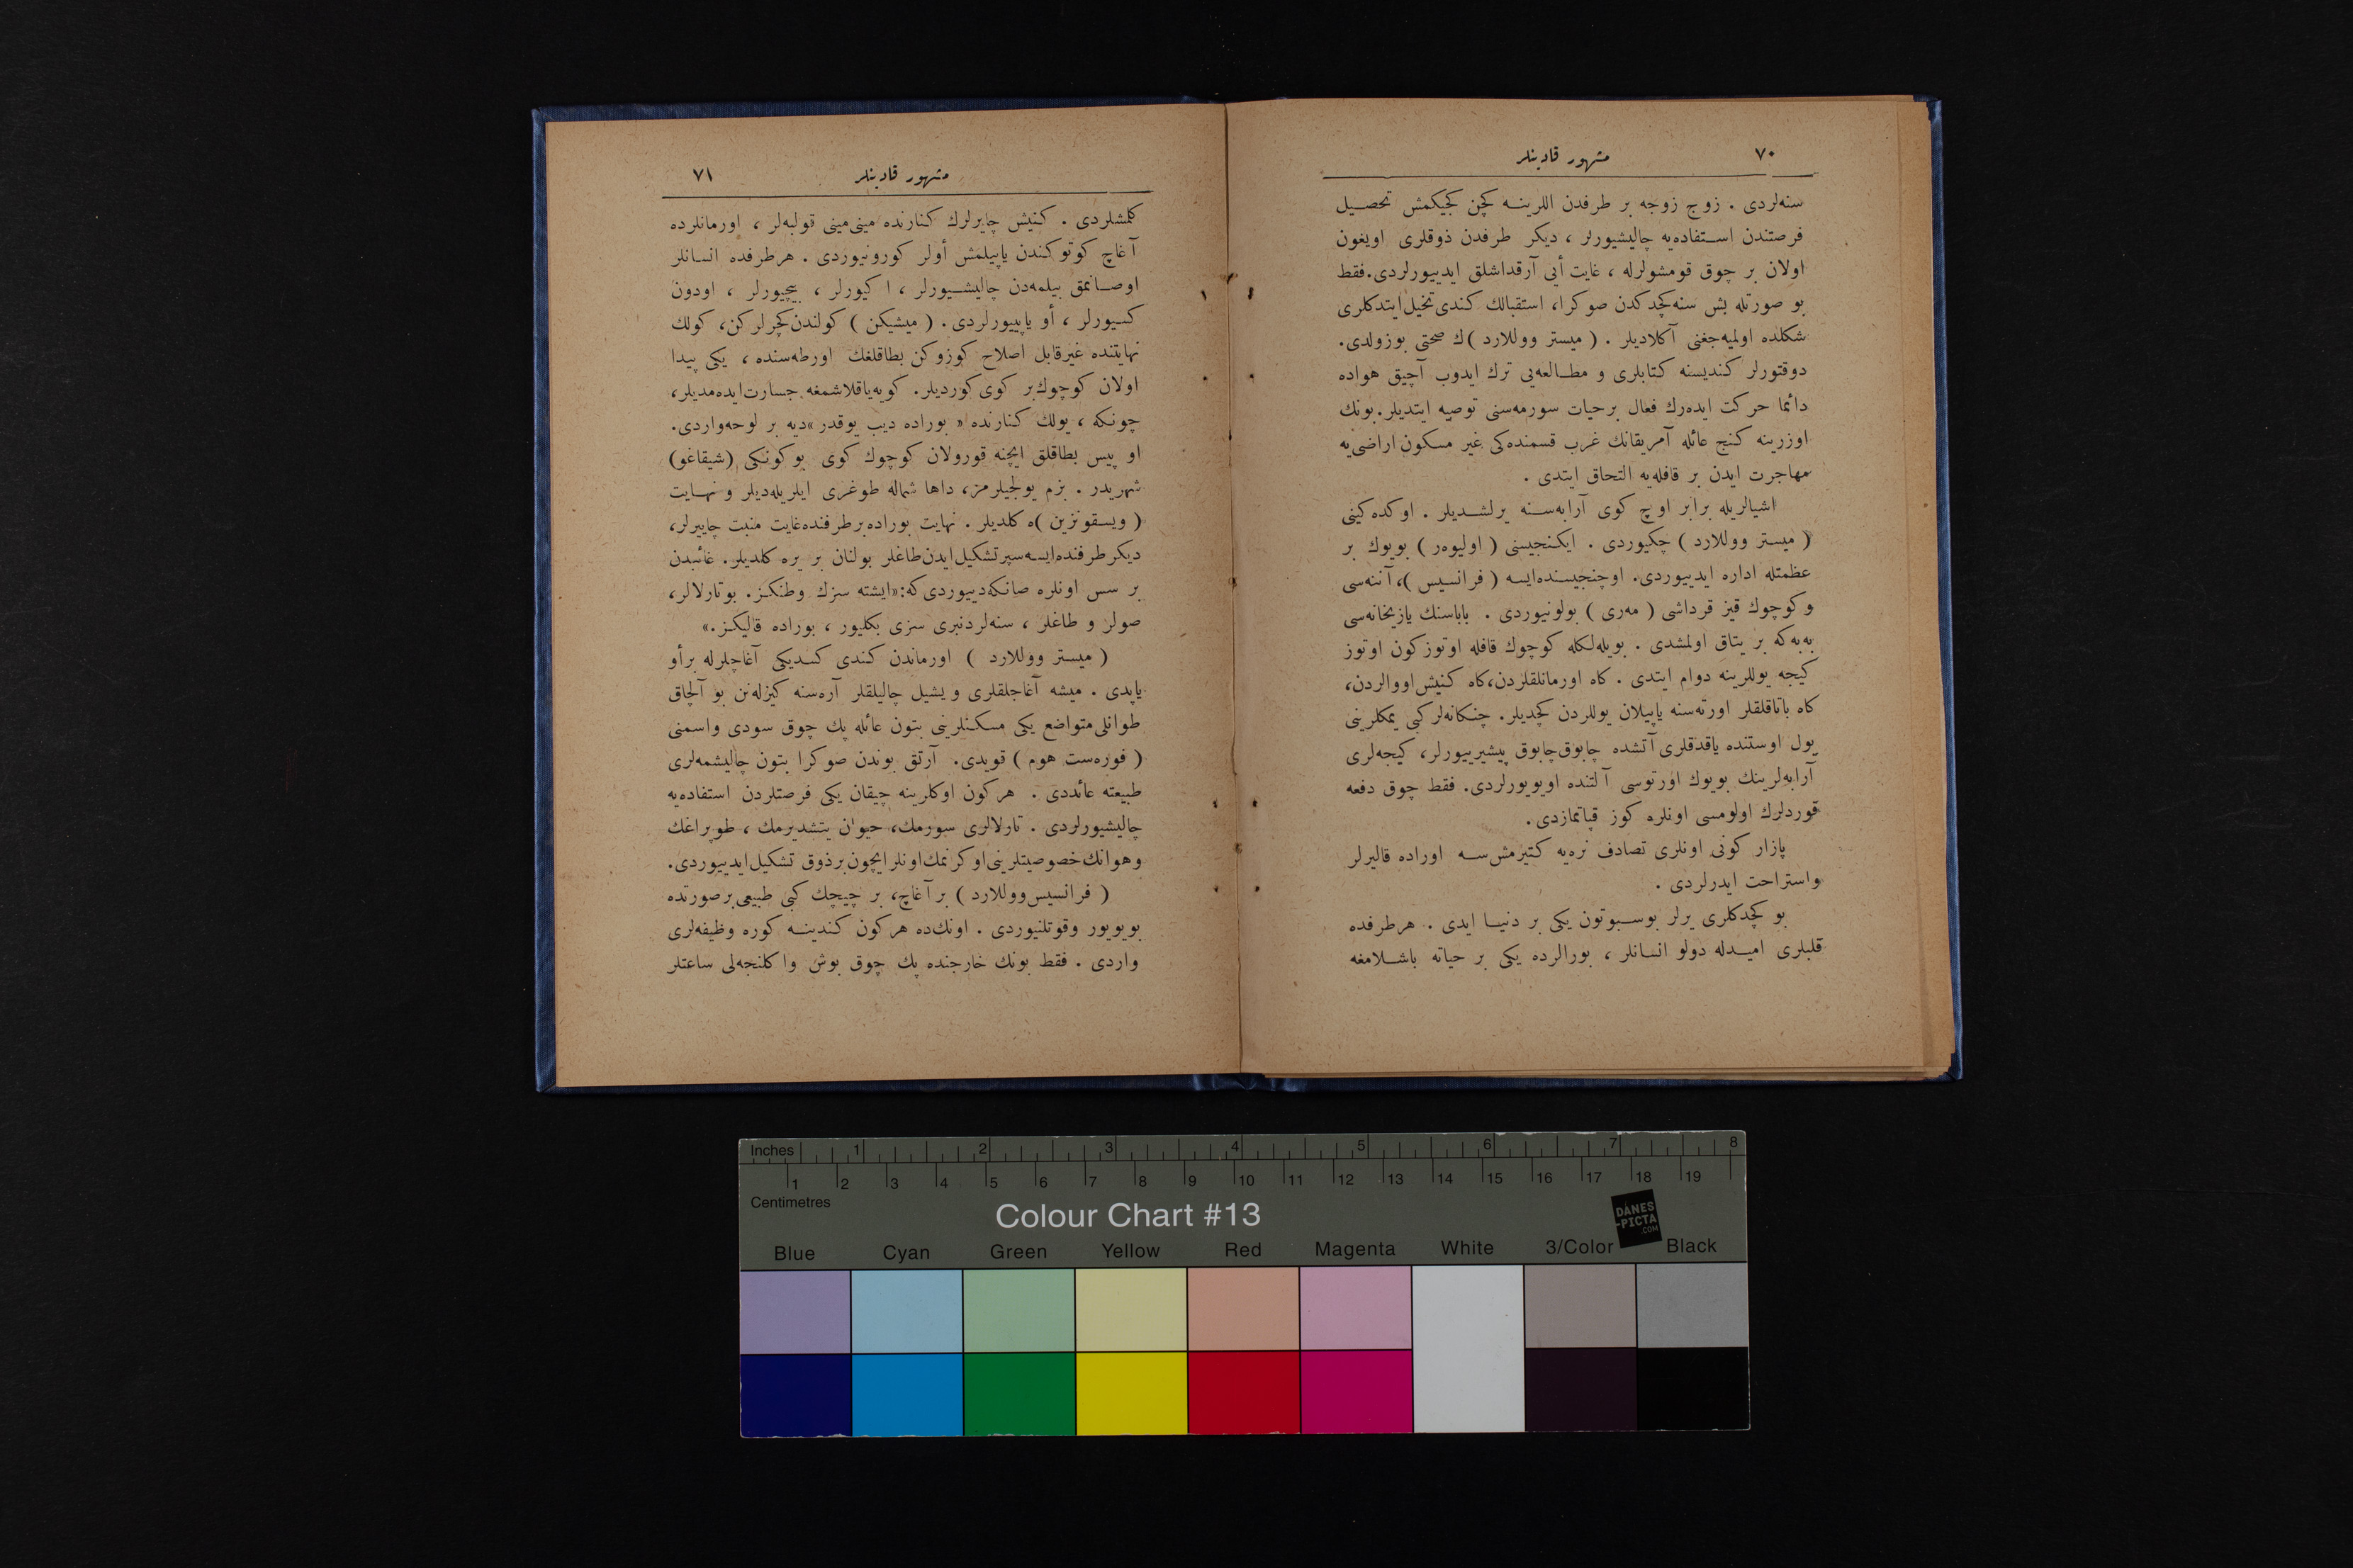 ٧٠
مشهور قادینلر
سنه‌لردی . زوج زوجه بر طرفدن اللرینه كچن كجیكمش تحصیل
فرصتندن استفاده‌یه چالیشیورلر ، دیكر طرفدن ذوقلری اویغون
اولان بر چوق قومشولرله ، غایت أیی آرقداشلق ایدییورلردی.فقط
بو صورتله بش سنه كچدكدن صوكرا، استقبالك كندی تخیل ایتدكلری
شكلده اولیه‌جغنی آكلادیلر . ( میستر ووللارد )ك صحتی بوزولدی.
دوقتورلر كندیسنه كتابلری و مطالعه‌یی ترك ایدوب آچیق هواده
دائما حركت ایده‌رك فعال بر حیات سورمه‌سنی توصیه ایتدیلر.بونك
اوزرینه كنج عائله آمریقانك غرب قسمنده‌كی غیر مسكون اراضی‌یه
مهاجرت ایدن بر قافله‌یه التحاق ایتدی .
اشیالریله برابر اوچ كوی آرابه‌سنه یرلشدیلر . اوكده‌كینی
( میستر ووللارد ) چكیوردی . ایكنجیسنی ( اولیوه‌ر ) بویوك بر
عظمتله اداره ایدییوردی. اوچنجیسنده‌ایسه ( فرانسیس )، آننه‌سی
و كوچوك قیز قرداشی ( مه‌ری ) بولونیوردی . باباسنك یازیخانه‌سی
به‌به‌كه بر یتاق اولمشدی . بویله‌لكله كوچوك قافله اوتوز كون اوتوز
كیجه یوللرینه دوام ایتدی . كاه اورمانلقلردن،كاه كنیش اووالردن،
كاه باتاقلقلر اورته‌سنه یاپیلان یوللردن كچدیلر. چنكانه‌لر كبی یمكلرینی
یول اوستنده یاقدقلری آتشده چابوق چابوق پیشیرییورلر، كیجه‌لری
آرابه‌لرینك بویوك اورتوسی آلتنده اویویورلردی. فقط چوق دفعه
قوردلرك اولومسی اونلره كوز قپاتمازدی.
پازار كونی اونلری تصادف نره‌یه كتیرمش‌سه اوراده قالیرلر
واستراحت ایدرلردی .
بو كچدكلری یرلر بوسبوتون یكی بر دنیا ایدی . هرطرفده
قلبلری امیدله دولو انسانلر ، بورالرده یكی بر حیاته باشلامغه
مشهور قادینلر
٧١
كلمشلردی . كنیش چایرلرك كنارنده مینی‌مینی قولبه‌لر ، اورمانلرده
آغاچ كوتوكندن یاپیلمش أولر كورونیوردی . هرطرفده انسانلر
اوصانمق بیلمه‌دن چالیشیورلر ، ا كیورلر ، بیچیورلر ، اودون
كسیورلر ، أو یاپییورلردی. ( میشیكن ) كولندن كچرلركن، كولك
نهایتنده غیرقابل اصلاح كوزوكن بطاقلغك اورطه‌سنده ، یكی پیدا
اولان كوچوك بر كوی كوردیلر. كویه یاقلاشمغه جسارت ایده‌مدیلر،
چونكه ، یولك كنارنده « بوراده دیب یوقدر »دیه بر لوحه‌واردی.
او پیس بطاقلق ایچنه قورولان كوچوك كوی بوكونكی (شیقاغو)
شهریدر . بزم یولجیلرمز، داها شماله طوغری ایلریله‌دیلر و نهایت
( ویسقونزین )ه كلدیلر . نهایت بوراده برطرفنده غایت منبت چاییرلر،
دیكر طرفنده‌ایسه سپر تشكیل ایدن طاغلر بولنان بر یره كلدیلر. غائبدن
بر سس اونلره صانكه دییوردی كه: «ایشته سزك وطنكز. بو تارلالر،
صولر و طاغلر ، سنه‌لردنبری سزی بكلیور ، بوراده قالیكز.»
( میستر ووللارد ) اورماندن كندی كسدیكی آغاچلرله برأو
یاپدی . میشه آغاجلقلری و یشیل چالیلقلر آره‌سنه كیزله‌نن بو آلچاق
طوانلی متواضع یكی مسكنلرینی بتون عائله پك چوق سودی واسمنی
( فوره‌ست هوم ) قویدی. آرتق بوندن صوكرا بتون چالیشمه‌لری
طبیعته عائددی . هركون اوكلرینه چیقان یكی فرصتلردن استفاده‌یه
چالیشیورلردی . تارلالری سورمك، حیوان یتشدیرمك ، طوپراغك
وهوانك خصوصیتلرینی اوكرنمك اونلر ایچون بر ذوق تشكیل ایدییوردی.
( فرانسیس ووللارد ) بر آغاچ، بر چیچك كبی طبیعی بر صورتده
بویویور وقوتلنیوردی . اونك‌ده هركون كندینه كوره وظیفه‌لری
واردی . فقط بونك خارجنده پك چوق بوش واكلنجه‌لی ساعتلر
Inches 1 2 3 4 5 6 7 8
1 2 3 4 5 6 7 8 9 10 11 12 13 14 15 16 17 18 19
Centimetres
Colour Chart #13
DANES
-PICTA
.COM
Blue Cyan Green Yellow Red Magenta White 3/Color Black